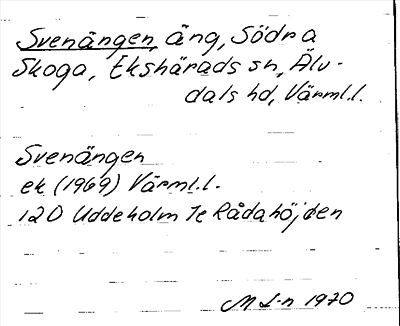 Svenängen, äng, Södra
Skoga, Ekshärads sn, Älv-
dals hd, Värml.l.
Svenängen
ek (1969) Värml.l.
12D Uddeholm 7e Rådahöjden
M L-n 1970